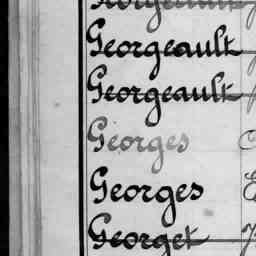 Georgeault
Georgeault
Georgeault
Georges
Georges
Georget